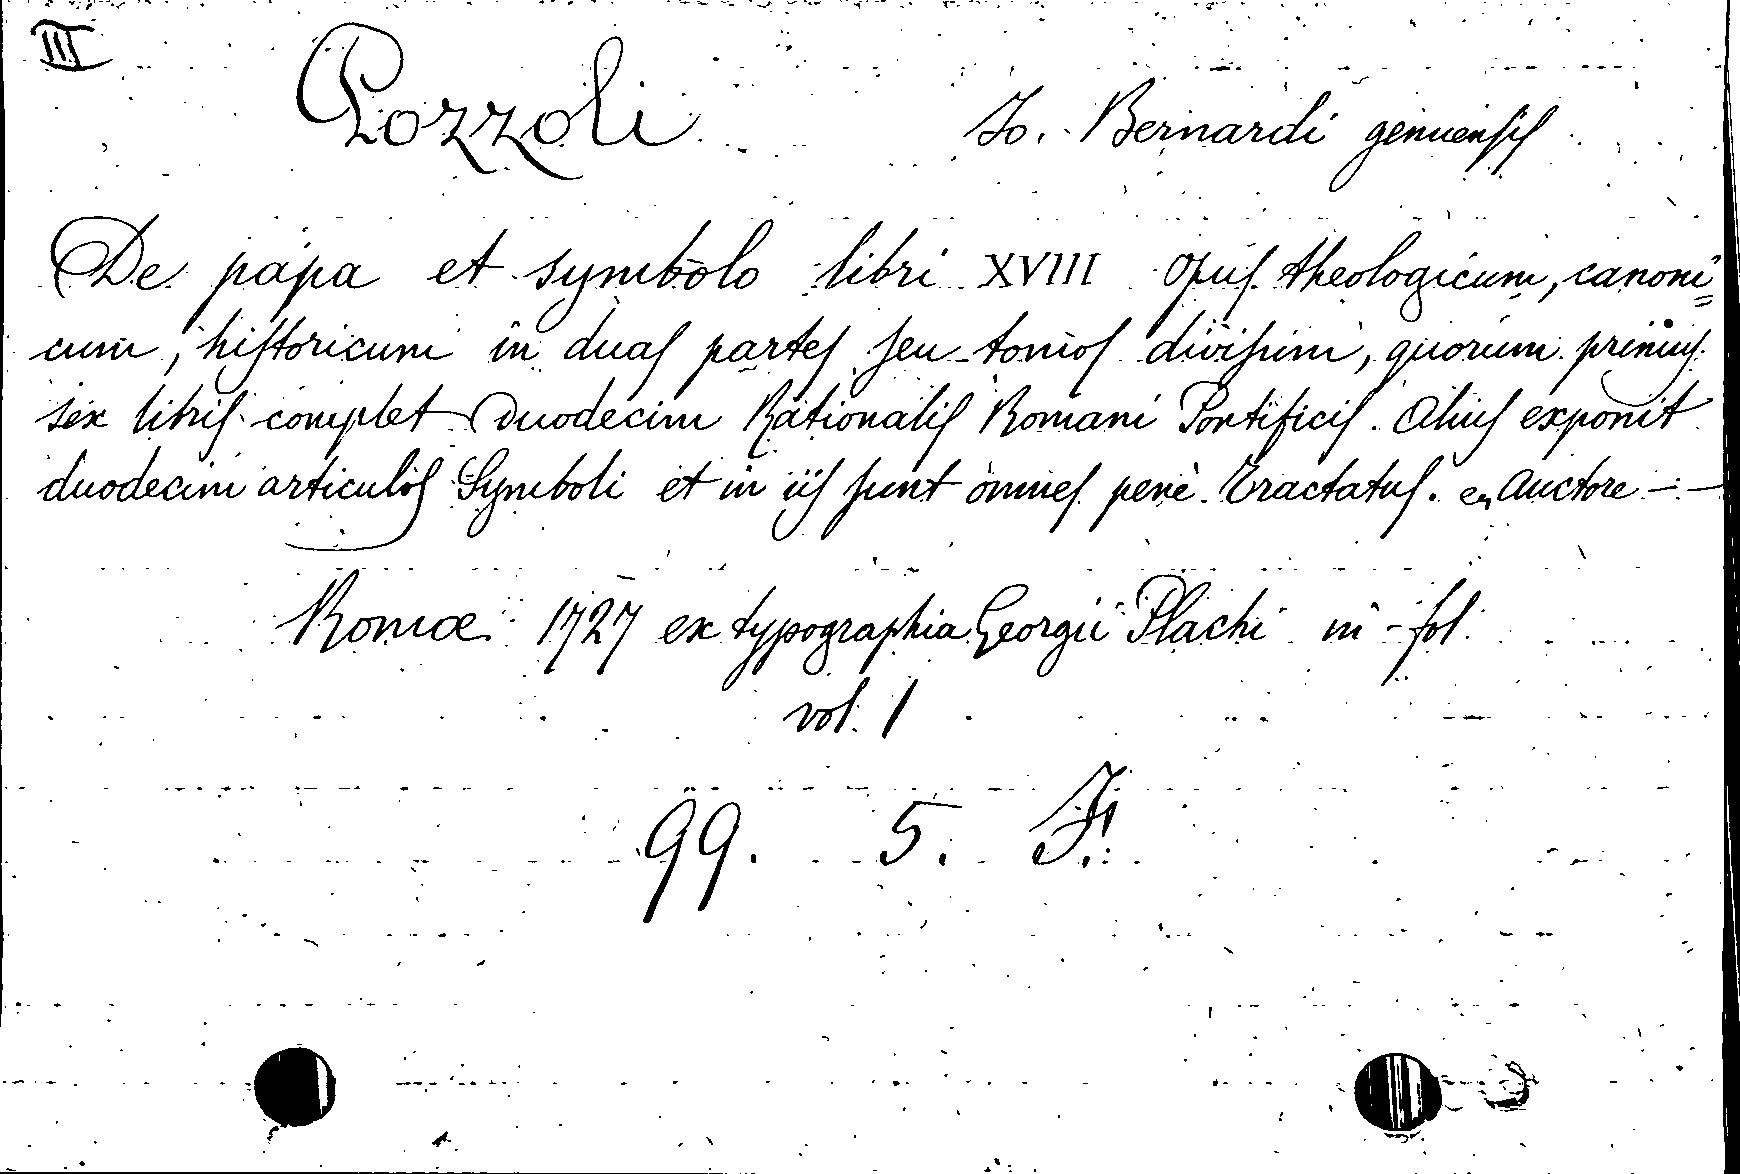 III
Pozzoli Jo. Bernardi genuensis
De papa et symbolo libri XVIII Opus theologicum, canoni=
cum, historicum in duas partes seu tomos divisum, quorum primus
sex libris complet Duodecim Rationalis Romani Pontificis. Alius exponit
duodecim articulos Symboli et in iis sunt omnes penè Tractatus. en Auctore —
Romæ 1727 ex typographia Georgii Plachi in-fol.
vol. 1
99. 5. F.